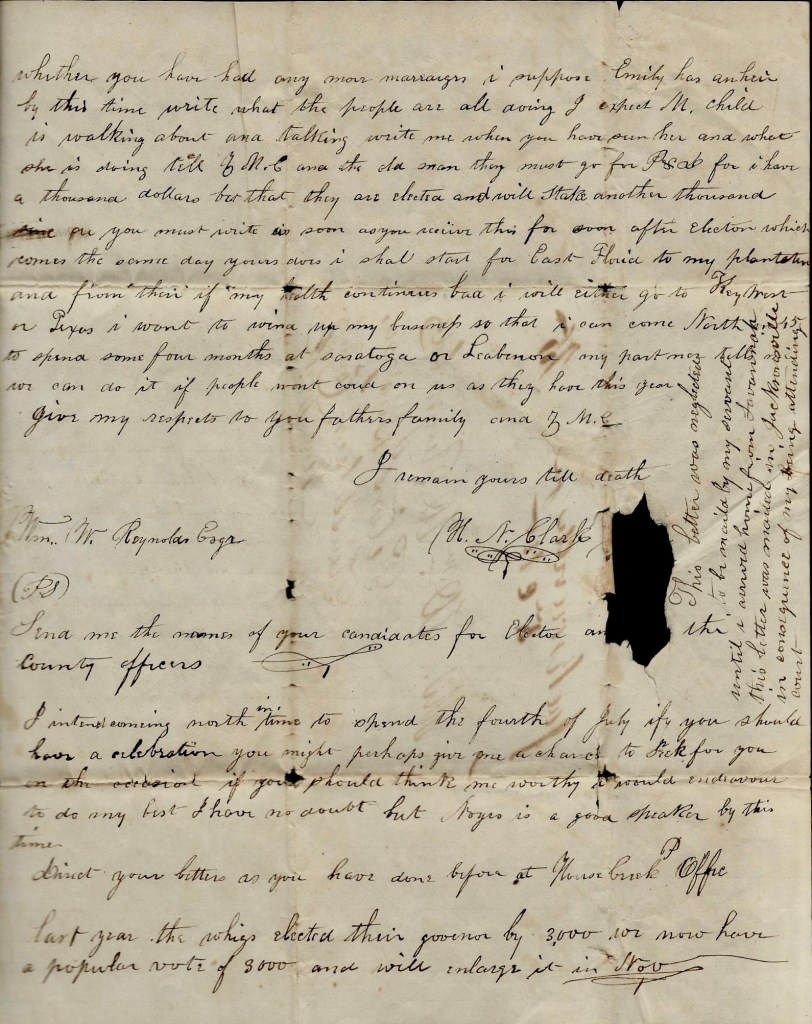 whether you have had any more marraiges i suppose Emily has an heir
by this time write what the people are all doing I expect M. child
is walking about and talking write me when you have seen her and what
she is doing tell Z M.C and the old man they must go for P&D for i have
a thousand dollars bet that they are elected and will stake another thousand
you must write as soon as you receive this for soon after Election which
comes the same day yours does i shal start for East Florid to my plantation
and from their if my health continues bad i will either go to Key West
or Texas i want to wind up my business so that i can come North
to spend some four months at saratoga or Leabenon my partner tells me
we can do it if people wont croud on us as they have this year
Give my respects to you fathers family and Z M.C
I remain yours till death
Wm. W. Reynolds Esqr
H. N. Clark
(PS)
Send me the names of your candidates for Elector an the
County officers
I intend comeing north in time to spend the fourth of July ify you should
have a celebration you might perhaps give me a chance to Speck for you
on the occasion if you should think me worthy i would endeavour
to do my best I have no doubt but Noyes is a good speaker by this
time
direct your letters as you have done before at Housecreek P Offic
last year the whigs elected their govenor by 3,000 we now have
a popular vote of 8000 and will enlarge it in Nov
This letter was neglected
to be maild by my servant
until i arrived home from Savannah
this letter was mailed in Jacksonville
in consequence of my being attending
court